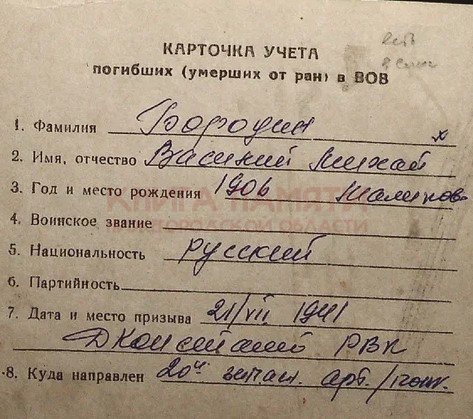 есть
КАРТОЧКА УЧЕТА
погибших (умерших от ран) в ВОВ
1. Фамилия Бородин
2. Имя, отчество Василий Михай
3. Год и место рождения 1906 Малинов
КНИГА ПАМЯТИ
4. Воинское звание
НИЖЕГОРОДСКОЙ ОБЛАСТИ
5. Национальность русский
6. Партийность
7. Дата и место призыва 21/VII. 1941
РВК
8. Куда направлен 20й запасн. арт./полк.